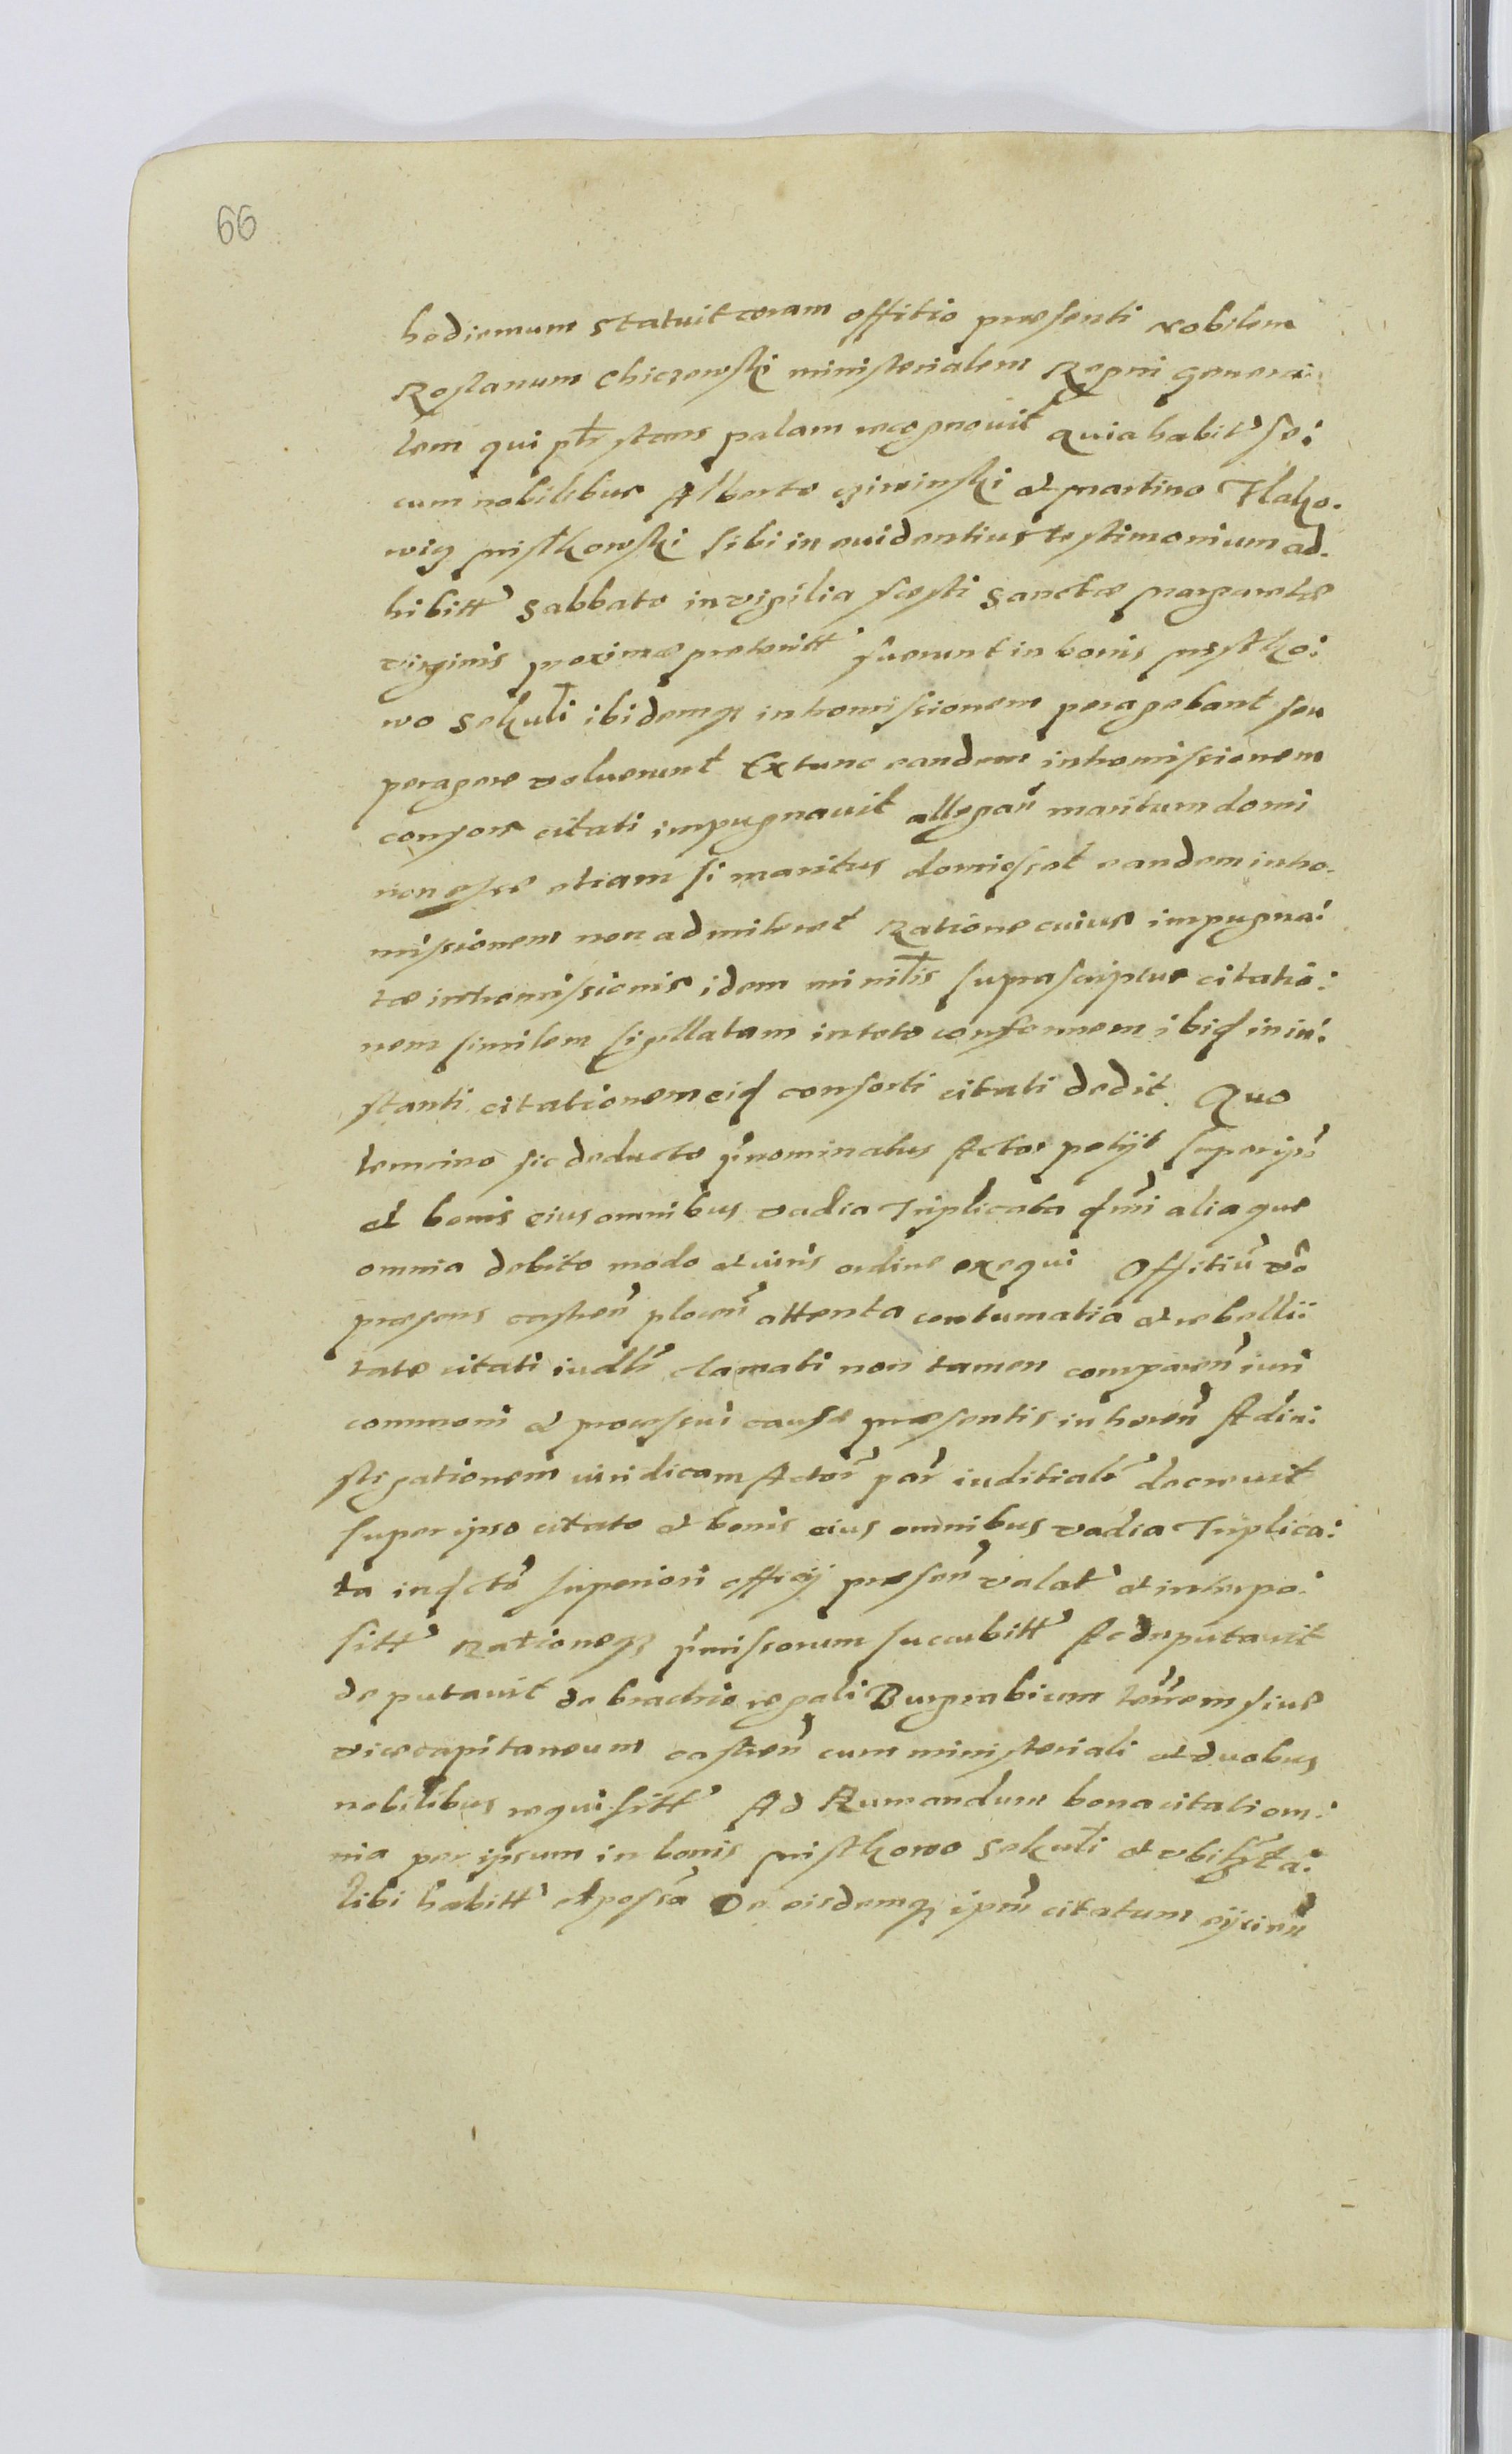 66
hodiernum statuit coram offitio præsenti nobilem
Rostanum Chiczewski ministerialem Regni genera:
lem qui phr stans palam recognouit quia habit se:
cum nobilibus Alberto cziwinski et Martino Flako.
wig Mistkowski sibi in euidentius testimonium ad.
hibitt Sabbato in vigilia foesti Sanctæ Margarethæ
virginis proximæ preteritt fuerunt in bonis Mistko:
wo Sekuli ibidemqz intromissionem peragebant seu
peragere voluerunt Extunc eandem intromissionem
consors citati impugnauit allegan maritum domi
non esse etiam si maritus domi esset eandem intro.
missionem non admiteret Ratione cuius impugna:
tæ intromissionis idem minilis suprascriptus citatio:
nem similem sigillatam in toto conformem ibid in in:
stanti citationem eid consorti citati dedit. Quo
termino sic deducto pnominatus Actor petijt super ipso
et bonis eius omnibus vadia Triplicata dmi aliaque
omnia debito modo et iuris ordine exequi Offitiu vo
præsens castren plocen attenta contumatia et rebelli:
tate citati iudlr clamati non tamen comparen iuri
communi et processui causæ præsentis inheren Ad in:
stigationem iuridicam Actor par iuditiale decreuit
super ipso citato et bonis eius omnibus vadia Triplica:
ta in dcto superiori officij præsen valat et interpo:
sitt Rationeqz pmissorum succubitt Ac deputauit
deputauit de brachio regali Burgrabium terrem siue
vicecapitaneum castren cum ministeriali et duobus
nobilibus requisitt Ad Rumandum bona citati om:
nia per ipsum in bonis Mistkowo Sekuli et vbilzta:
libi habitt et possa De eisdemqz ipm citatum eijcien